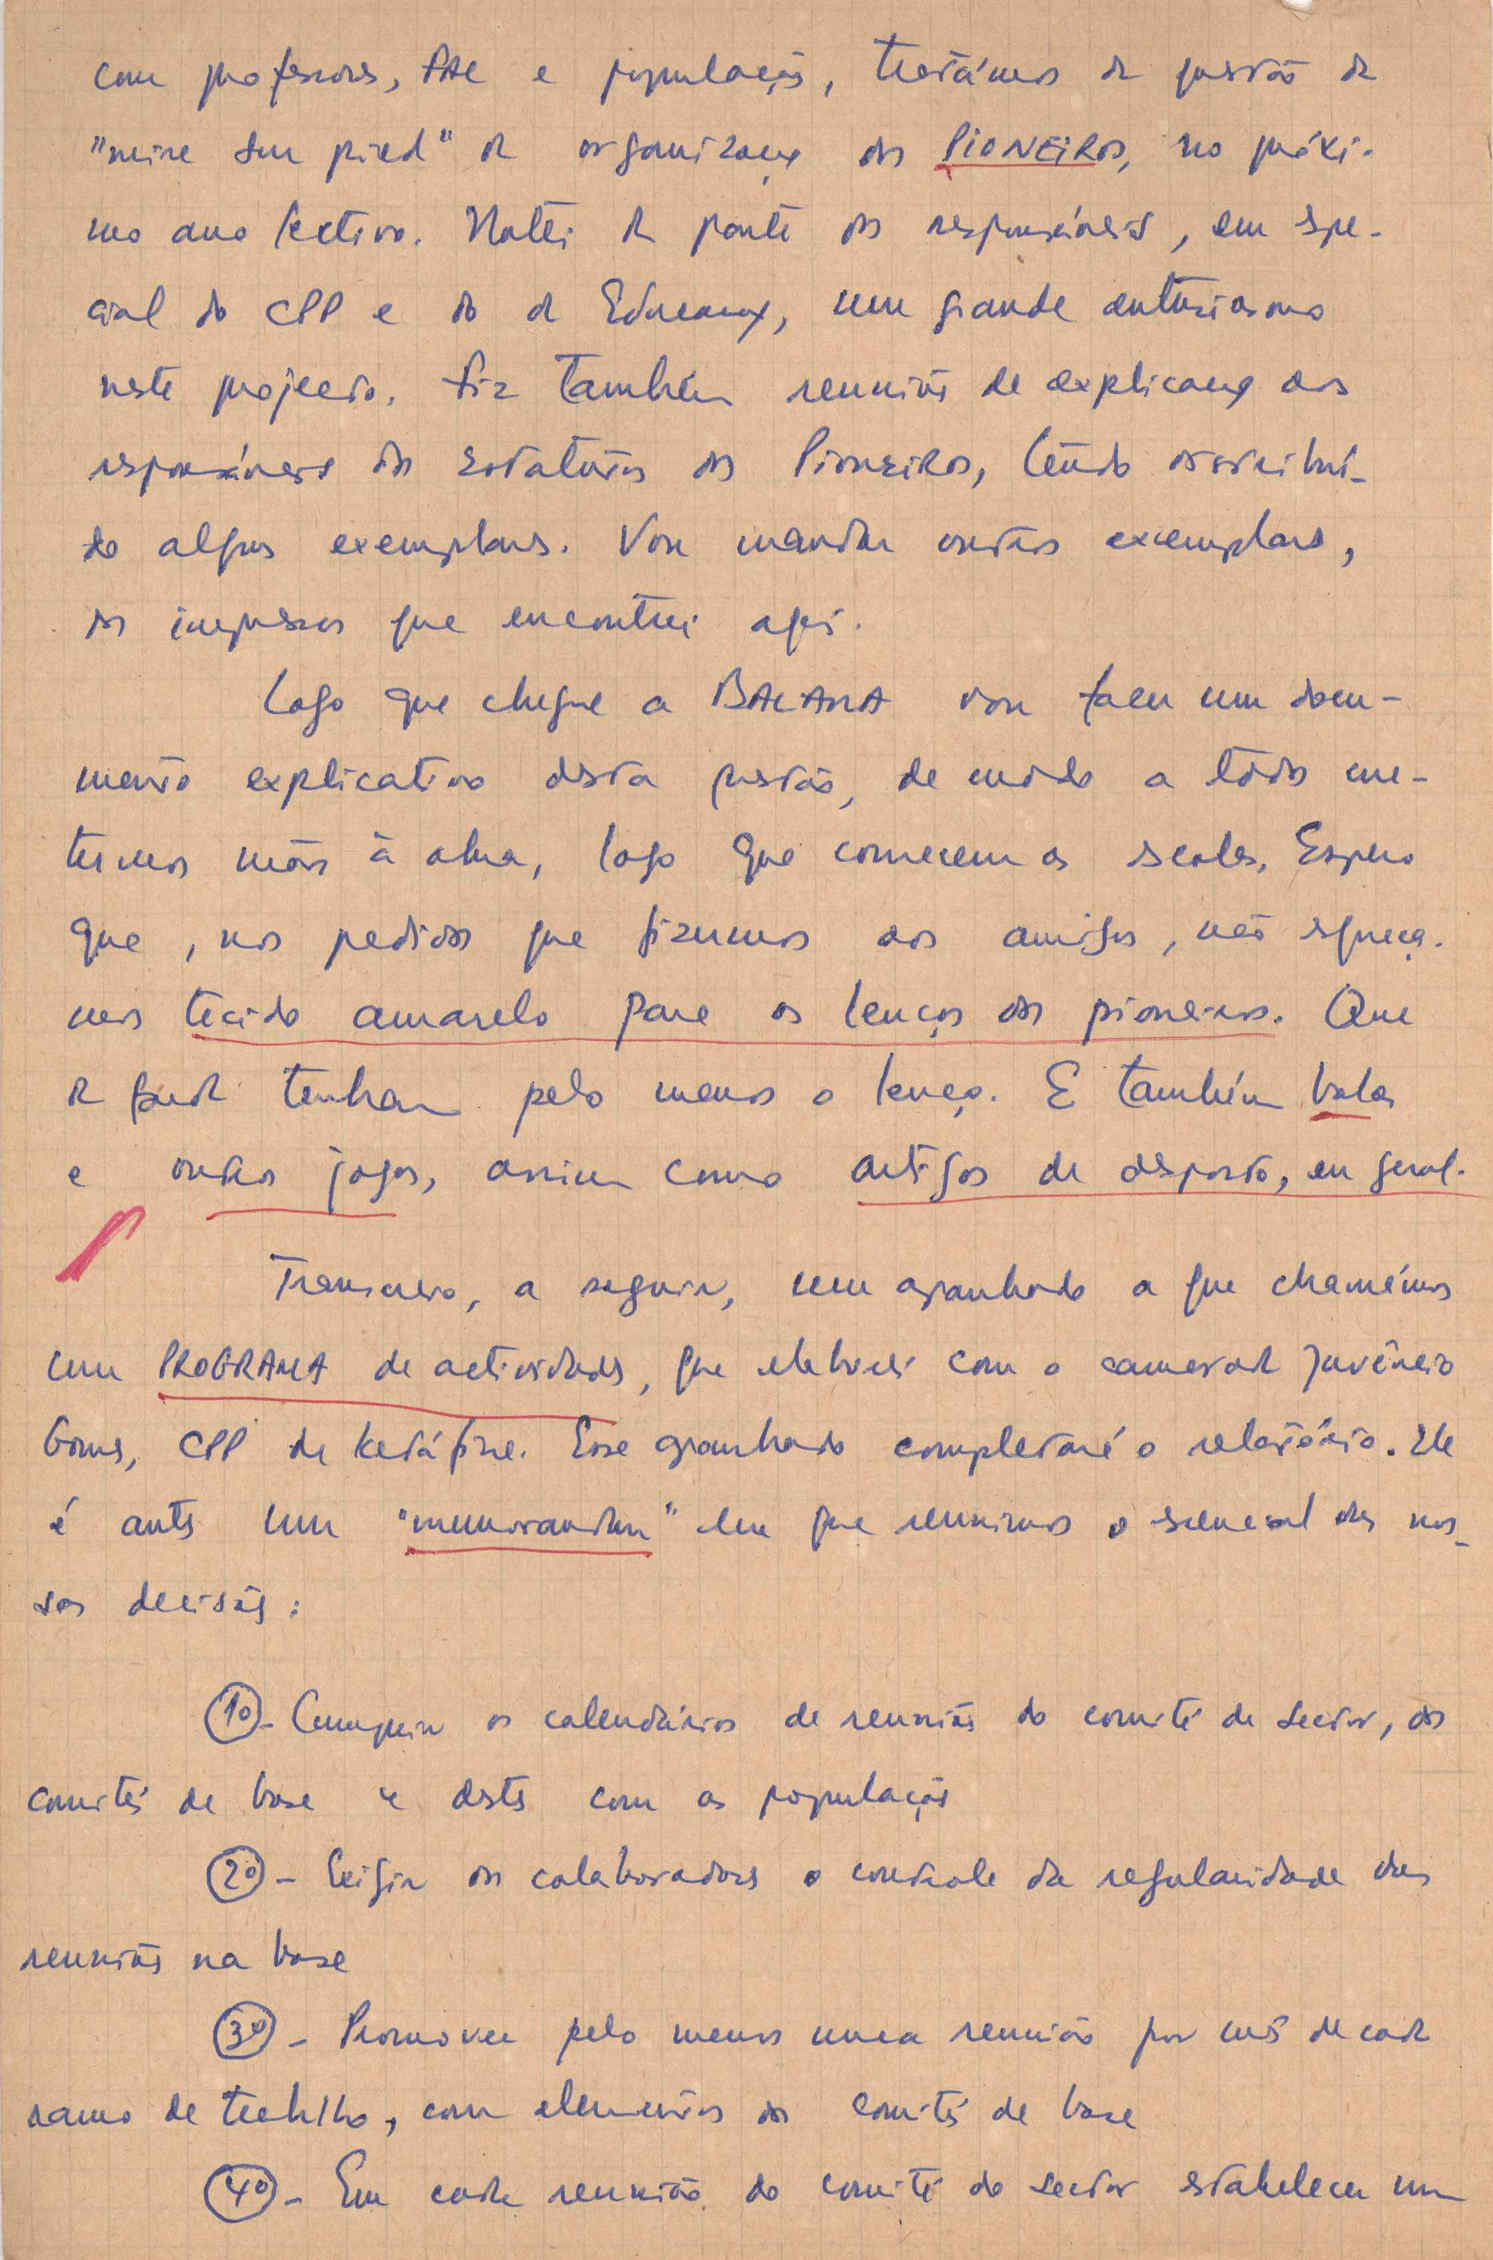 com professores, FAL e população, tratámos da questão da
"mise sur pied" da organização dos PIONEIROS, no próxi-
mo ano lectivo. Notei da parte dos responsáveis, em espe-
cial do CPP e do da Educação, um grande entusiasmo
neste projecto. Fiz também reuniões de explicação aos
responsáveis dos estatutos dos Pioneiros, tendo distribuí-
do alguns exemplares. Vou mandar outros exemplares,
dos impressos que encontrei aqui.
Logo que chegue a BALANA vou fazer um docu-
mento explicativo desta questão, de modo a todos me-
termos mãos à obra, logo que comecem as escolas. Espero
que, nos pedidos que fizermos aos amigos, não esqueça-
mos tecido amarelo para os lenços dos pioneiros. Que
tenham pelo menos o lenço. E também bolas
e outros jogos, assim como artigos de desporto, em geral.
Transcrevo, a seguir, um apanhado a que chamámos
um PROGRAMA de actividades, que elaborei com o camarada Juvêncio
Gomes, CPP de Ketáfine. Esse apanhado completará o relatório. Ele
é antes um "memorandum" em que reunimos o essencial das nos-
sas decisões:
1º - Cumprir os calendários de reuniões do comité de sector, dos
comités de base e destes com as populações
2º - Exigir dos colaboradores o controle da regularidade das
reuniões na base
3º - Promover pelo menos uma reunião por mês de cada
ramo de trabalho, com elementos dos comités de base
4º - Em cada reunião do comité do sector estabelecer um